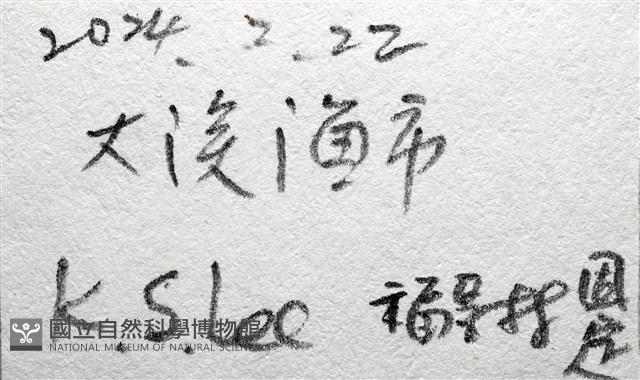 2024.2.22
大溪漁市
K.S.Lee
國立自然科學博物館
NATIONAL MUSEUM OF NATURAL SCIENCE
福